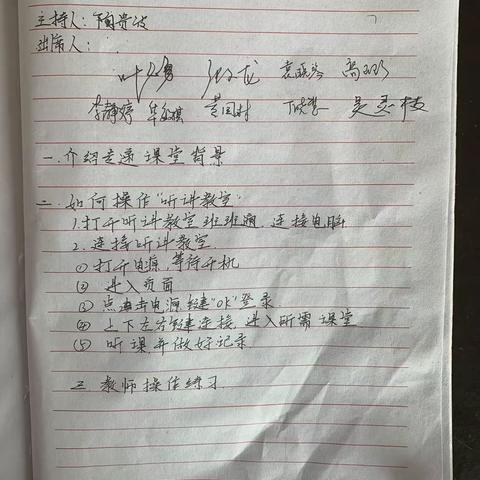 主持人：陶贵波
出席人：
李静婷
一.介绍专递课堂背景
二.如何操作"听讲教室"
1.打开听讲教室班班通，连接电脑
2.连接听讲教室
① 打开电源，等待开机
② 进入页面
③ 点击电源键"OK"登录
④ 上下左右键连接，进入所需课堂
⑤ 听课并做好记录
三 教师操作练习